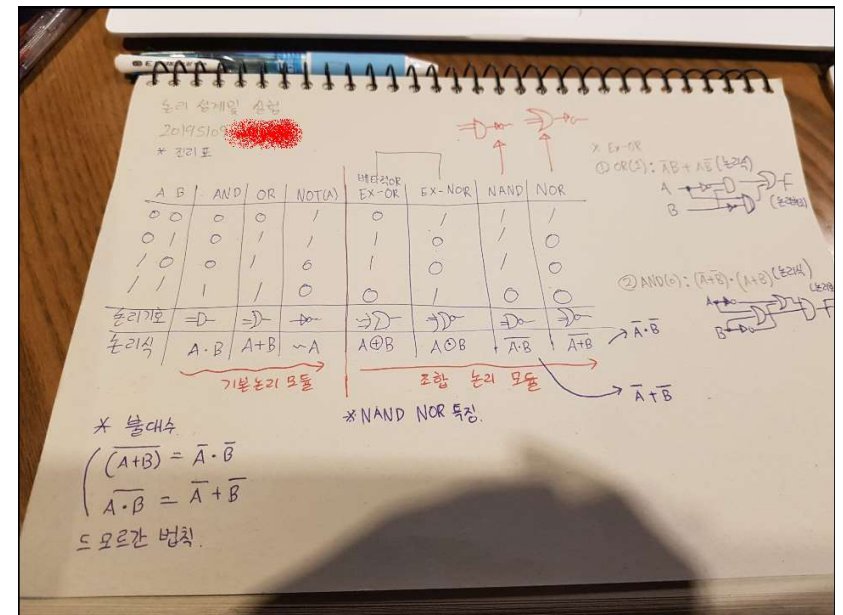 논리 설계및 실험
2019S109
* 진리표
A B AND OR NOT(A) 배타적OR EX-OR EX-NOR NAND NOR
0 0 0 0 1 0 1 1 1
0 1 0 1 1 1 0 1 0
1 0 0 1 0 1 0 1 0
1 1 1 1 0 0 1 0 0
논리기호
논리식 A·B A+B ~A A⊕B A⊙B A̅·̅B̅ A̅+̅B̅
기본논리 모듈
조합 논리 모듈
A̅·B̅
A̅+B̅
* Ex-OR
① OR(1): A̅B + AB̅ (논리식)
A
B
F
② AND(0): (A̅+B̅)·(A+B) (논리식)
A
B
F
* NAND NOR 특징.
* 불대수
(A̅+̅B̅) = A̅·B̅
A̅·̅B̅ = A̅+B̅
드모르간 법칙.